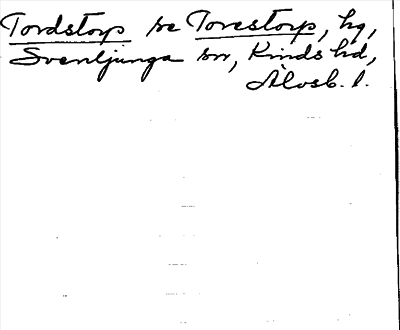 Tordstorp se Torestorp, hg,
Svenljunga sn, Kinds hd,
Älvsb. l.